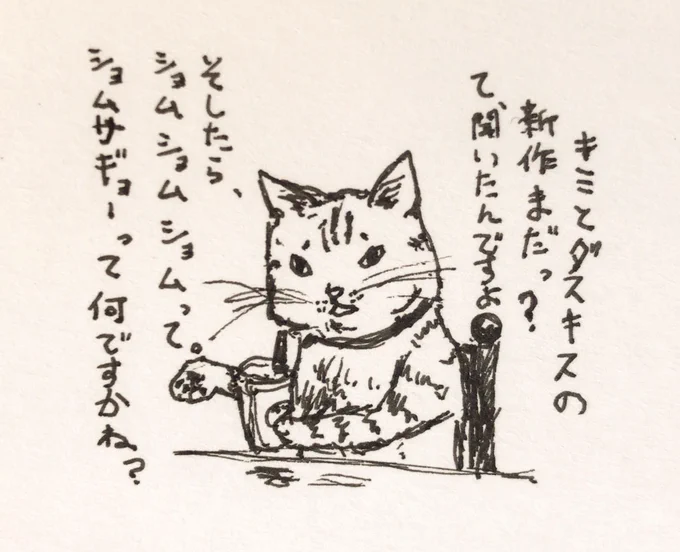 キミとダスキスの
新作まだっ?
て、聞いたんですよ
そしたら、
ショムショムショムって。
ショムサギョーって何ですかね?